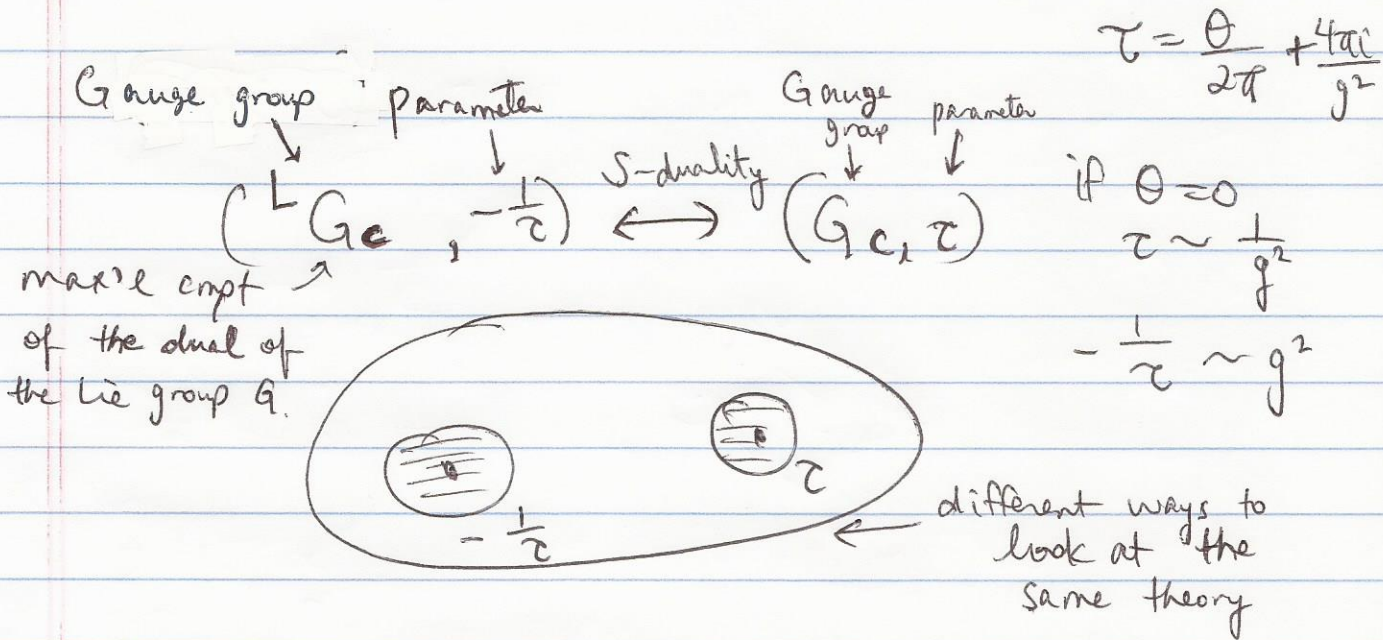 τ = θ/2π + 4πi/g²
Gauge group parameter
Gauge group parameter
(ᴸG_c, -1/τ) S-duality ⟷ (G_c, τ)
if θ = 0
τ ~ 1/g²
-1/τ ~ g²
max'l cmpt
of the dual of
the Lie group G.
-1/τ
τ
different ways to
look at the
same theory